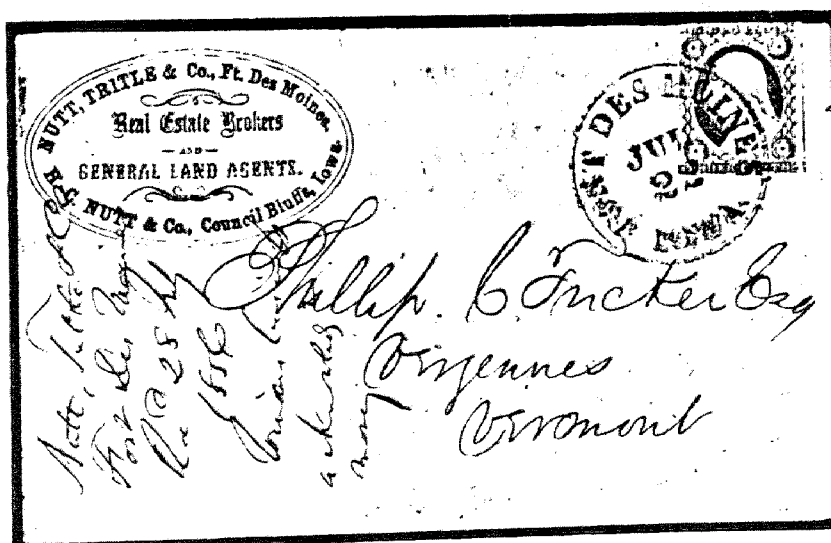 NUTT, TRITLE & Co., Ft. Des Moines.
Real Estate Brokers
AND
GENERAL LAND AGENTS.
H. C. NUTT & Co., Council Bluffs, Iowa.
FORT DES MOINES
JUL
IOWA.
Phillip. C Tucker Esq
Vergennes
Vermont
Nutt, Tritle & Co
Fort Des Moines
28
1856
money